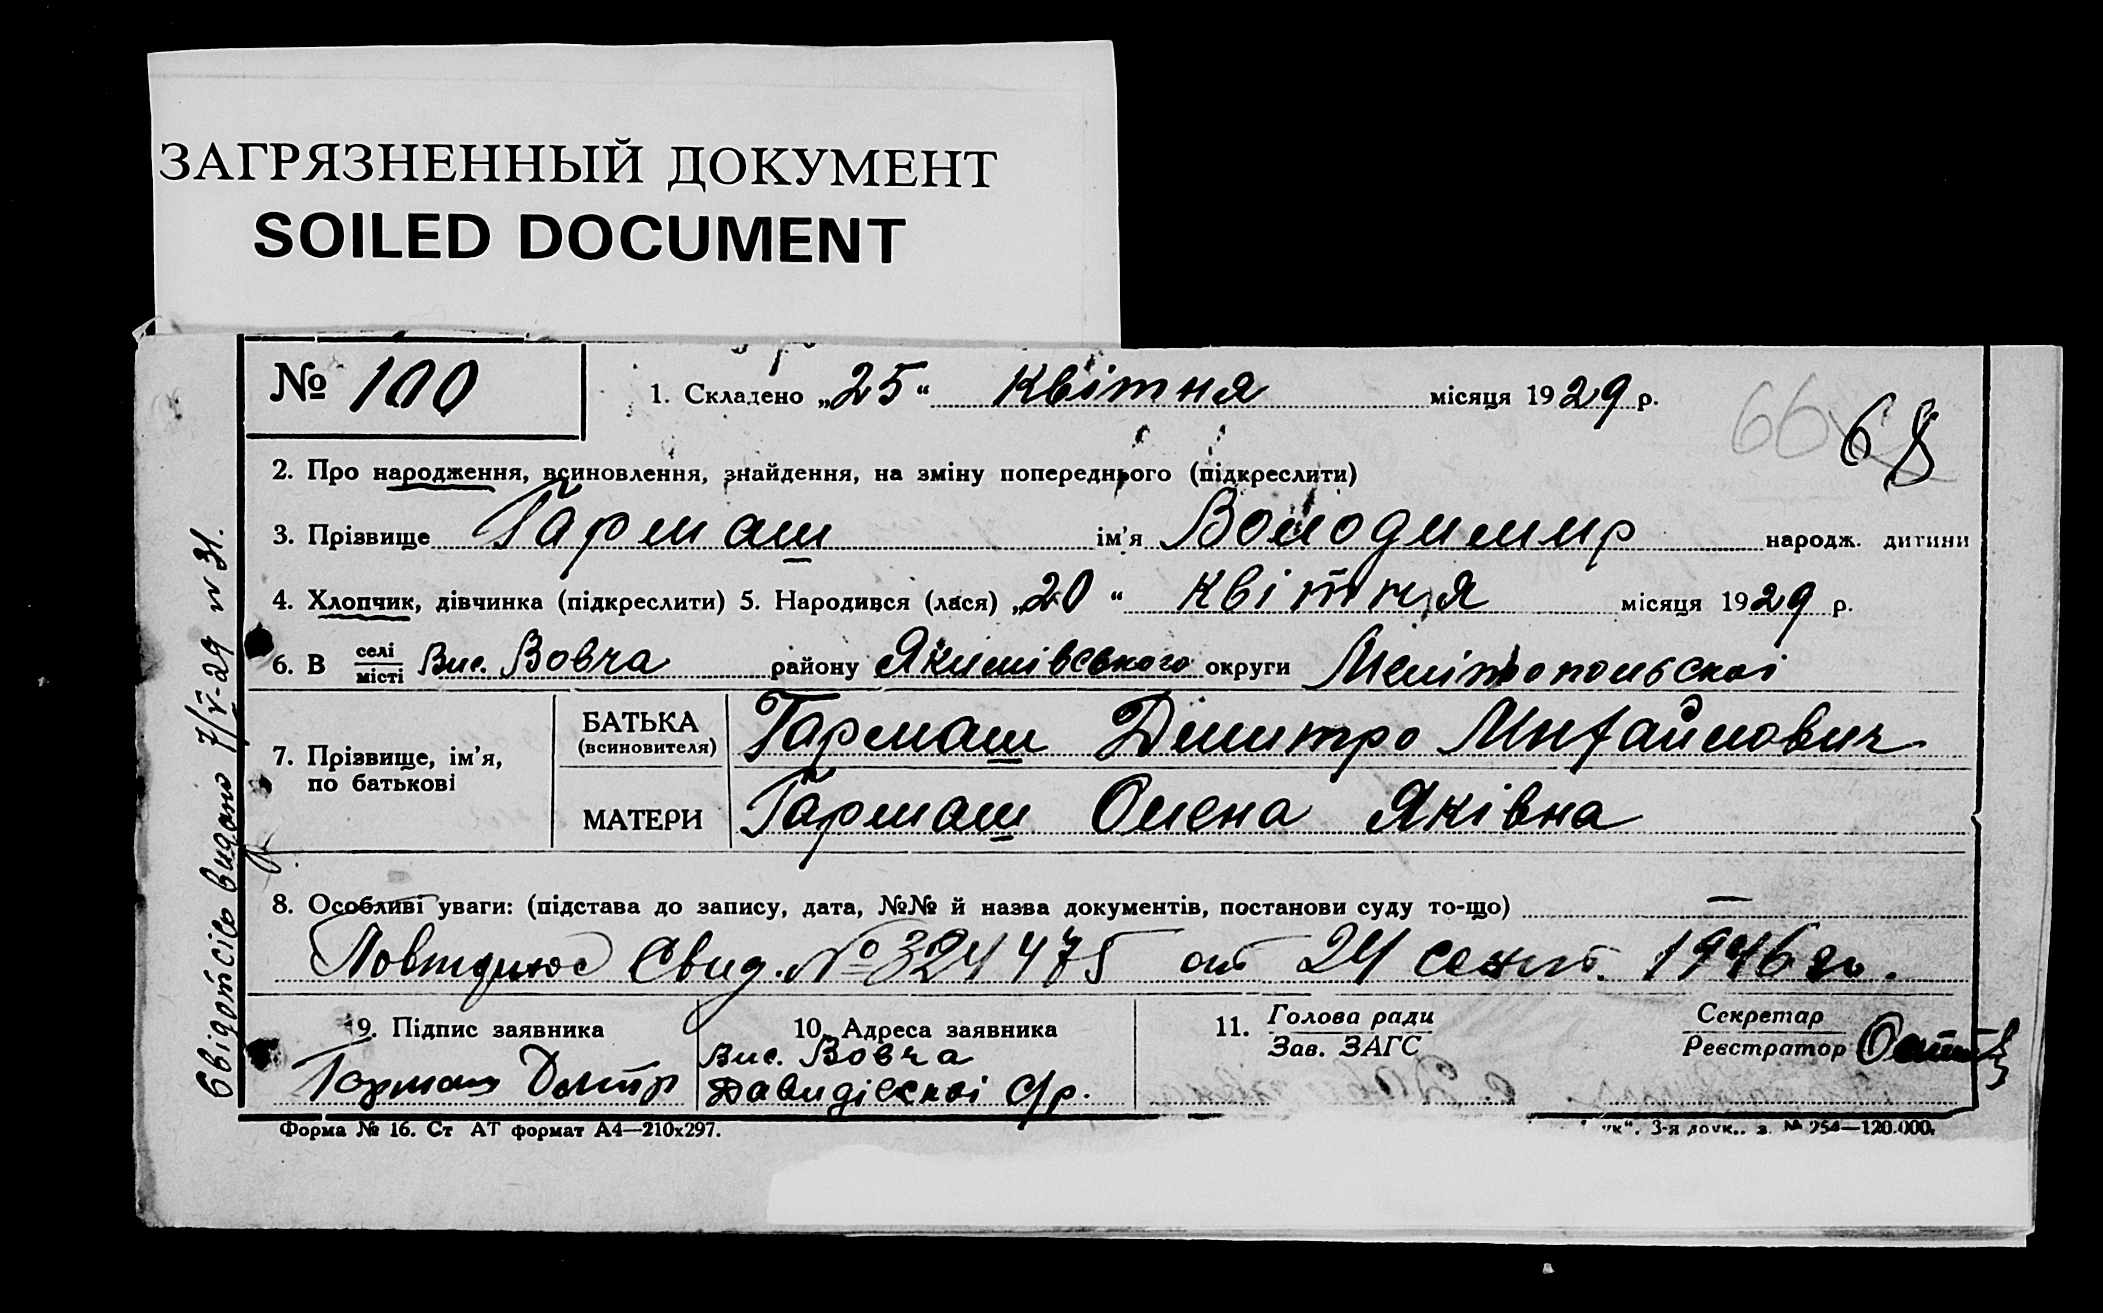 ЗАГРЯЗНЕННЫЙ ДОКУМЕНТ
SOILED DOCUMENT
№ 100
1. Складено „25“ квітня місяця 1929 р.
66 68
2. Про народження, всиновлення, знайдення, на зміну попереднього (підкреслити)
3. Прізвище Гармаш ім'я Володимир народж. дитини
4. Хлопчик, дівчинка (підкреслити) 5. Народився (лася) „20“ квітня місяця 1929 р.
6. В селі місті Вис. Вовча району Якимівського округи Мелітопольскоі
7. Прізвище, ім'я, по батькові
БАТЬКА (всиновителя) Гармаш Дмитро Михайлович
МАТЕРИ Гармаш Олена Яківна
8. Особливі уваги: (підстава до запису, дата, №№ й назва документів, постанови суду то-що) —
Свид. № 324475 от 24 сент. 1946 го.
9. Підпис заявника
Гармаш Дмитр
10. Адреса заявника
Вис. Вовча
Давидівскоі с/р.
11. Голова ради
Зав. ЗАГС
Секретар
Реєстратор
Форма № 16. Ст АТ формат А4—210х297.
3-я друк., з. № 254—120.000.
Свідотсіво видано 7/V-29 N 31.